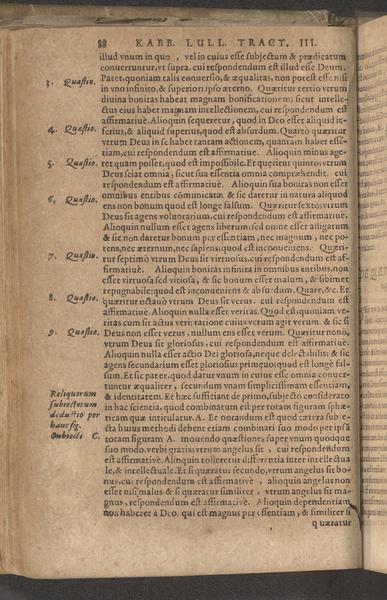 88 KABB. LULL. TRACT. III.
illud vnum in quo, vel in cuius esse subiectum & prædicatum
conuertuntur, vt supra. cui respondendum est illud esse Deum.
3. Quæstio. Patet, quoniam talis conuersio, & æqualitas, non potest esse nisi
in vno infinito, & superiori ipso æterno. Quæritur tertio vtrum
diuina bonitas habeat magnam bonificationem sicut intelle-
ctus eius habet magnam intellectionem, cui respondendum est
affirmatiuè. Alioquin sequeretur, quod in Deo esset aliquid in-
4. Quæstio. ferius, & aliquid superius, quod est absurdum. Quartò quæritur
vtrum Deus in se habet tantam actionem, quantam habet essen-
tiam, cui respondendum est affirmatiuè. Alioquin minus age-
5. Quæstio. ret quam posset, quod est impossibile. Et quæritur quintò vtrum
Deus sciat omnia, sicut sua essentia omnia comprehendit. cui
respondendum est affirmatiuè. Alioquin sua bonitas non esset
6. Quæstio. omnibus entibus cōmunicata, & sic daretur in natura aliquod
ens non bonum quod est longe falsum. Quæritur sextò vtrum
Deus sit agens voluntarium, cui respondendum est affirmatiuè.
Alioquin nullum esset agens liberum: sed omne esset alligatum
& sic non daretur bonum per essentiam, nec magnum, nec po-
tens, nec æternum, nec sapiens; quod est inconueniens. Quæri-
7. Quæstio. tur septimò vtrum Deus sit virtuosus, cui respondendum est af-
firmatiuè. Alioquin bonitas infinita in omnibus entibus, non
esset virtuosa sed vitiosa, & sic bonum esset malum, & sibimet
repugnabile: quod est inconueniens & absurdum. Quare, &c. Et
8. Quæstio. quæritur octauò vtrum Deus sit verus. cui respondendum est
affirmatiuè. Alioquin nulla esset veritas. Quod est, quoniam ve-
ritas cum sit actus veri: ratione cuius verum agit verum. & sic si
9. Quæstio. Deus non esset verus, nullum ens esset verum. Quæritur nono,
vtrum Deus sit gloriosus, cui respondendum est affirmatiuè.
Alioquin nulla esset actio Dei gloriosa, neque delectabilis: & sic
agens secundarium esset gloriosius primo: quod est longè fal-
sum. Et sic patet, quod datur vnum in cuius esse omnia conuer-
tuntur æqualiter, secundum vnam simplicissimam essentiam,
Reliquorum
subiectorum
deductio per
hanc fig.
Subiecti C.
& identitatem. Et hæc sufficiant de primo, subiecto considerato
in hac scientia, quod combinatum est per totam figuram sphæ-
ricam quæ intitulatur. A. Et notandum est quod cætera subie-
cta huius methodi debent etiam combinari suo modo per ipsā
totam figuram A. mouendo quæstiones super vnum quodque
suo modo. verbi gratia: vtrum angelus sit, cui respondendum
est affirmatiuè. Alioquin tolleretur differentia inter intellectua
le, & intellectuale. Et si quæratur secundo, vtrum angelus sit bo-
nus, cui respondendum est affirmatiuè, alioquin angelus non
esset nisi malus & si quæratur similiter, vtrum angelus sit ma-
gnus, respondendum est affirmatiuè. Alioquin dependentiam
non haberet à Deo, qui est magnus per essentiam, & similiter si
quæratur